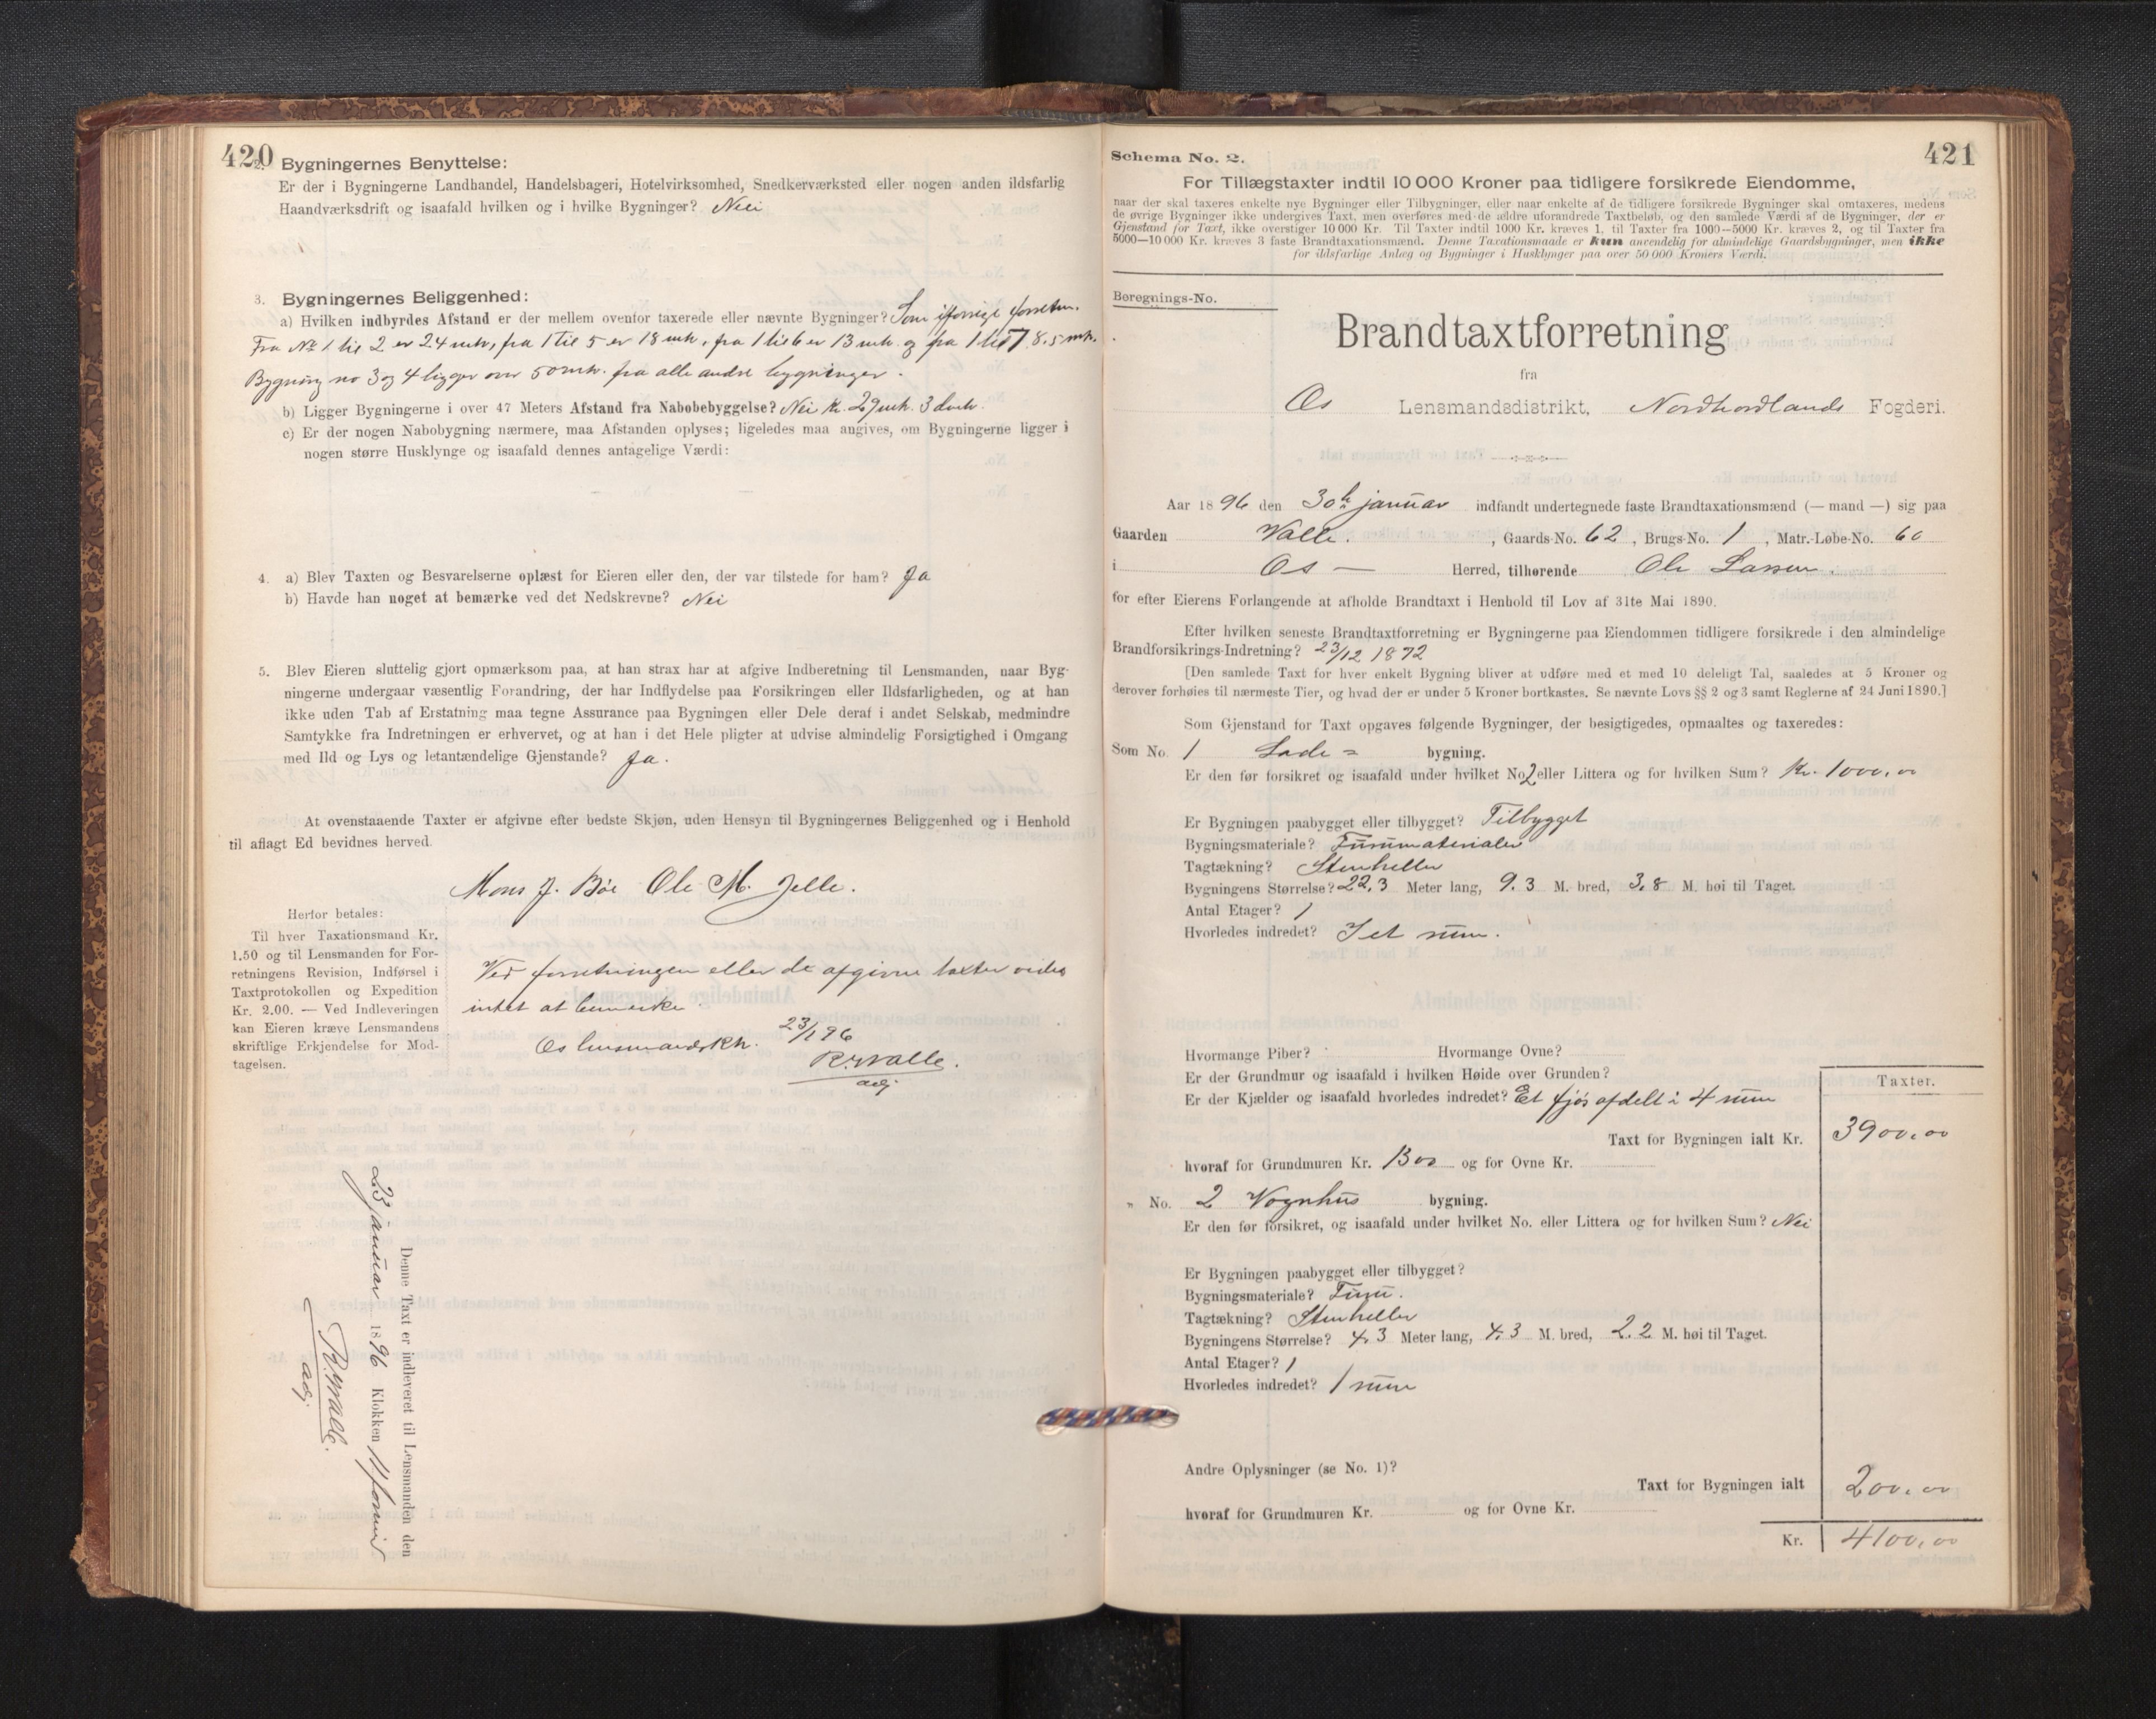 420
2. Bygningernes Benyttelse:
Er der i Bygningerne Landhandel, Handelsbageri, Hotelvirksomhed, Snedkerværksted eller nogen anden ildsfarlig
Haandværksdrift og isaafald hvilken og i hvilke Bygninger? Nei
3. Bygningernes Beliggenhed:
a) Hvilken indbyrdes Afstand er der mellem ovenfor taxerede eller nævnte Bygninger? Som i forrige forretn.
Fra No 1 til 2 er 24 mtr, fra 1 til 5 er 18 mtr, fra 1 til 6 er 13 mtr. og fra 1 til 7 8.5 mtr.
Bygning no 3 og 4 ligger over 50 mtr. fra alle andre bygninger.
b) Ligger Bygningerne i over 47 Meters Afstand fra Nabobebyggelse? Nei 29 mtr. 3
c) Er der nogen Nabobygning nærmere, maa Afstanden oplyses; ligeledes maa angives, om Bygningerne ligger i
nogen større Husklynge og isaafald dennes antagelige Værdi:
4. a) Blev Taxten og Besvarelserne oplæst for Eieren eller den, der var tilstede for ham? Ja
b) Havde han noget at bemærke ved det Nedskrevne? Nei
5. Blev Eieren sluttelig gjort opmærksom paa, at han strax har at afgive Indberetning til Lensmanden, naar Byg-
ningerne undergaar væsentlig Forandring, der har Indflydelse paa Forsikringen eller Ildsfarligheden, og at han
ikke uden Tab af Erstatning maa tegne Assurance paa Bygningen eller Dele deraf i andet Selskab, medmindre
Samtykke fra Indretningen er erhvervet, og at han i det Hele pligter at udvise almindelig Forsigtighed i Omgang
med Ild og Lys og letantændelige Gjenstande? Ja.
At ovenstaaende Taxter er afgivne efter bedste Skjøn, uden Hensyn til Bygningernes Beliggenhed og i Henhold
til aflagt Ed bevidnes herved.
Mons J. Bøe Ole M. Jelle.
Herfor betales:
Til hver Taxationsmand Kr.
1.50 og til Lensmanden for For-
retningens Revision, Indførsel i
Taxtprotokollen og Expedition
Kr. 2.00. — Ved Indleveringen
kan Eieren kræve Lensmandens
skriftlige Erkjendelse for Mod-
tagelsen.
Ved forretningen eller de afgivne taxter vides
intet at bemerke
Os lensmandsktr. 23/1 96
R. Walle.
adj.
Denne Taxt er indleveret til Lensmanden den
23 januar 1896 Klokken 11 formid
R. Walle.
adj.
421
Schema No. 2.
For Tillægstaxter indtil 10 000 Kroner paa tidligere forsikrede Eiendomme,
naar der skal taxeres enkelte nye Bygninger eller Tilbygninger, eller naar enkelte af de tidligere forsikrede Bygninger skal omtaxeres, medens
de øvrige Bygninger ikke undergives Taxt, men overføres med de ældre uforandrede Taxtbeløb, og den samlede Værdi af de Bygninger, der er
Gjenstand for Taxt, ikke overstiger 10 000 Kr. Til Taxter indtil 1000 Kr. kræves 1, til Taxter fra 1000—5000 Kr. kræves 2, og til Taxter fra
5000—10 000 Kr. kræves 3 faste Brandtaxationsmænd. Denne Taxationsmaade er kun anvendelig for almindelige Gaardsbygninger, men ikke
for ildsfarlige Anlæg og Bygninger i Husklynger paa over 50 000 Kroners Værdi.
Beregnings-No.
Brandtaxtforretning
fra
Os Lensmandsdistrikt, Nordhordlands Fogderi.
Aar 1896 den 30te januar indfandt undertegnede faste Brandtaxationsmænd (— mand —) sig paa
Gaarden Valle. , Gaards-No. 62 , Brugs-No. 1 , Matr.-Løbe-No. 60
i Os — Herred, tilhørende Ole Larsen.
for efter Eierens Forlangende at afholde Brandtaxt i Henhold til Lov af 31te Mai 1890.
Efter hvilken seneste Brandtaxtforretning er Bygningerne paa Eiendommen tidligere forsikrede i den almindelige
Brandforsikrings-Indretning? 23/12 1872
[Den samlede Taxt for hver enkelt Bygning bliver at udføre med et med 10 deleligt Tal, saaledes at 5 Kroner og
derover forhøies til nærmeste Tier, og hvad der er under 5 Kroner bortkastes. Se nævnte Lovs §§ 2 og 3 samt Reglerne af 24 Juni 1890.]
Som Gjenstand for Taxt opgaves følgende Bygninger, der besigtigedes, opmaaltes og taxeredes:
Som No. 1 Lade = bygning.
Er den før forsikret og isaafald under hvilket No. 2 eller Littera og for hvilken Sum? Kr. 1000,00
Er Bygningen paabygget eller tilbygget? Tilbygget
Bygningsmateriale? Furumaterialer
Tagtækning? Stenheller
Bygningens Størrelse? 22.3 Meter lang, 9.3 M. bred, 3.8 M. høi til Taget.
Antal Etager? 1
Hvorledes indredet? I et rum.
Hvormange Piber? Hvormange Ovne?
Er der Grundmur og isaafald i hvilken Høide over Grunden?
Er der Kjælder og isaafald hvorledes indredet? Et fjøs afdelt i 4 rum
Taxter.
Taxt for Bygningen ialt Kr. 3900,00
hvoraf for Grundmuren Kr. 1300 og for Ovne Kr.
" No. 2 Vognhus bygning.
Er den før forsikret, og isaafald under hvilket No. eller Littera og for hvilken Sum? Nei
Er Bygningen paabygget eller tilbygget?
Bygningsmateriale? Furu.
Tagtækning? Stenheller
Bygningens Størrelse? 4.3 Meter lang, 4.3 M. bred, 2.2 M. høi til Taget.
Antal Etager? 1
Hvorledes indredet? 1 rum
Andre Oplysninger (se No. 1)?
Taxt for Bygningen ialt 200,00
hvoraf for Grundmuren Kr. og for Ovne Kr.
Kr. 4100,00